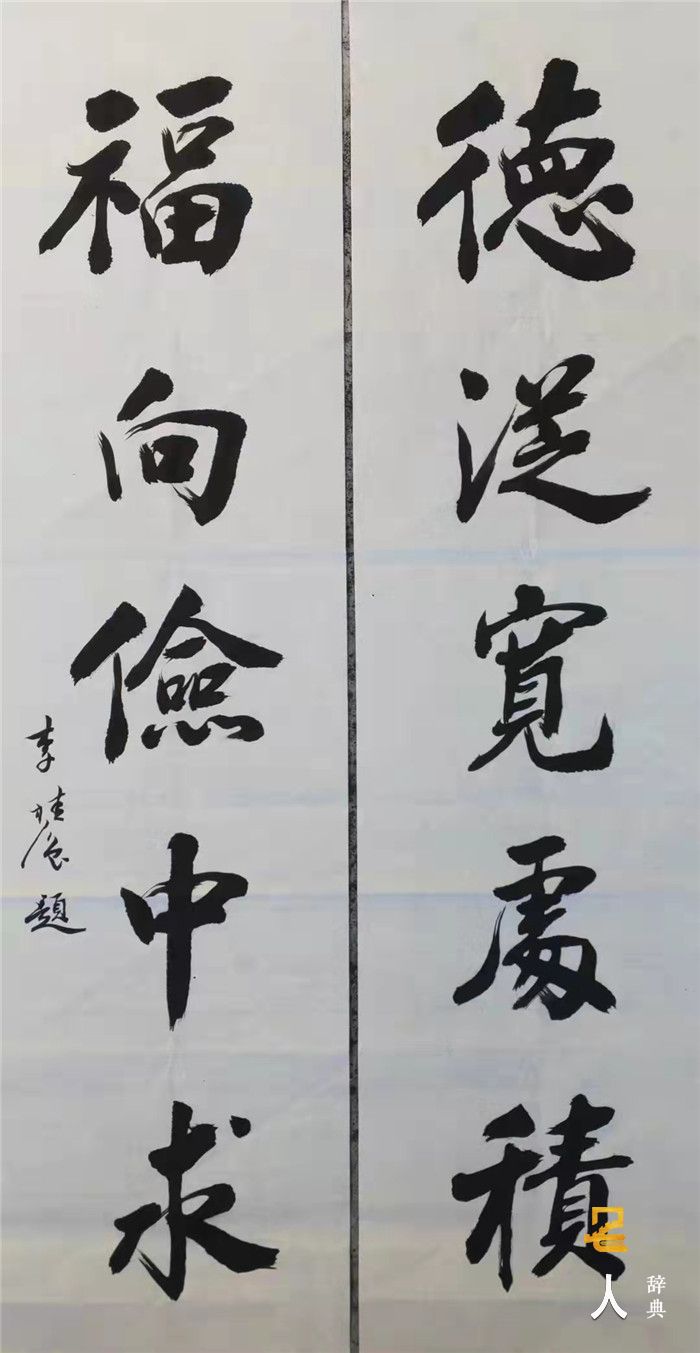 德從寬處積
福向儉中求
李
題
名人
辞典